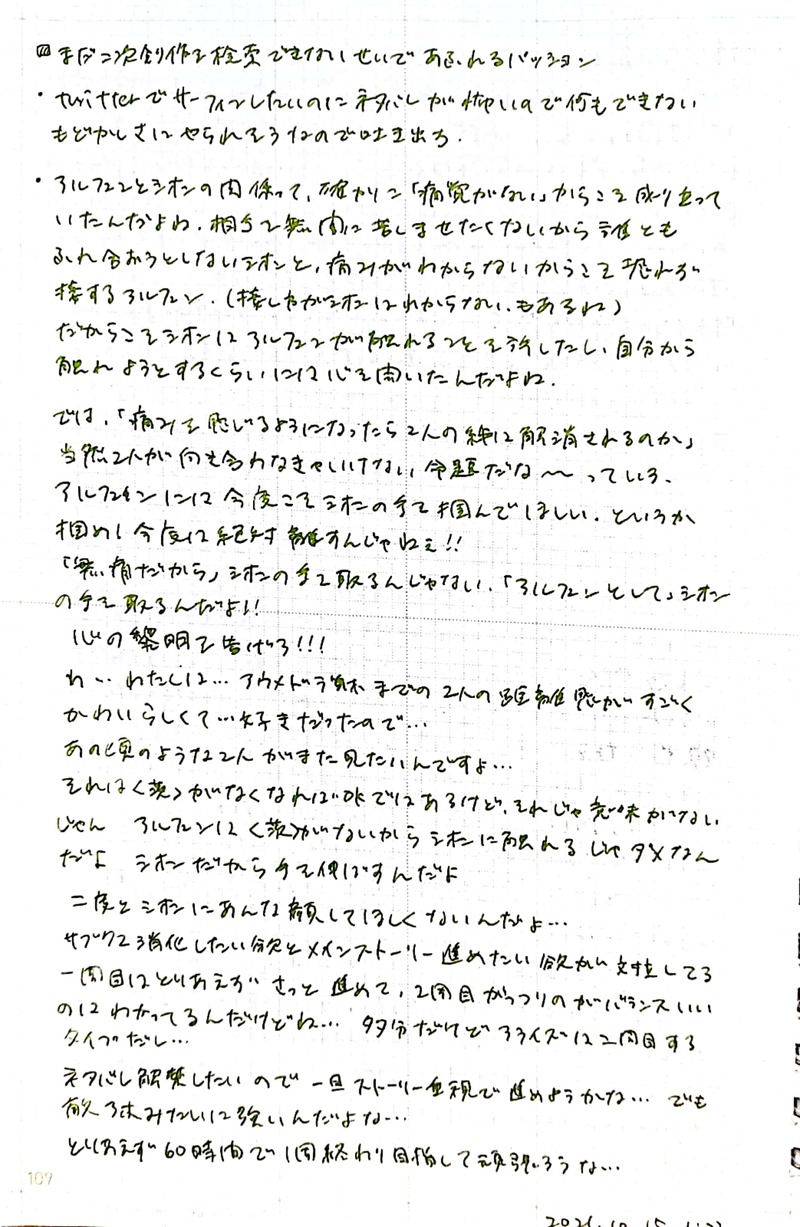 まだ二次創作を検索できないせいであふれるパッション
・twitterでサーフィンしたいのにネタバレが怖いので何もできない
もどかしさにやられそうなので吐き出す.
・アルフェンとシオンの関係って、確かに「痛覚がない」からこそ成り立って
いたんだよね. 相手を無闇に苦しませたくないから誰とも
ふれ合おうとしないシオンと、痛みがわからないからこそ恐れず
接するアルフェン. (接し方がシオンにはわからない、もあるね)
だからこそシオンはアルフェンが触れることを許したし、自分から
触れようとするくらいには心を開いたんだよね.
では、「痛みを感じるようになったら2人の絆は解消されるのか」
当然2人が向き合わなきゃいけない命題だな〜っている、
アルフェンには今度こそシオンの手を掴んでほしい. というか
掴め! 今度は絶対離すんじゃねぇ!!
「無痛だから」シオンの手を取るんじゃない、「アルフェンとして」シオン
の手を取るんだよ!!
心の黎明を告げろ!!!
わ…わたしは… アウメドラ戦までの2人の距離感がすごく
かわいらしくて…好きだったので…
あの頃のような2人がまた見たいんですよ…
それは〈茨〉がなくなれば咲ではあるけど、それじゃ意味がない
じゃん アルフェンは〈茨〉がないからシオンに触れる じゃダメなん
だよ シオンだから手を伸ばすんだよ
二度とシオンにあんな顔してほしくないんだよ…
サブクエ消化したい欲とメインストーリー進めたい欲が対立してる
一周目はとりあえずさっと進めて、2周目がっつりのがバランスいい
のはわかってるんだけどね… 多分だけどアライズは2周目する
タイプだし…
ネタバレ解禁したいので一旦ストーリー重視で進めようかな… でも
敵アホみたいに強いんだよな…
とりあえず60時間で1周終わり目指して頑張ろうな…
109